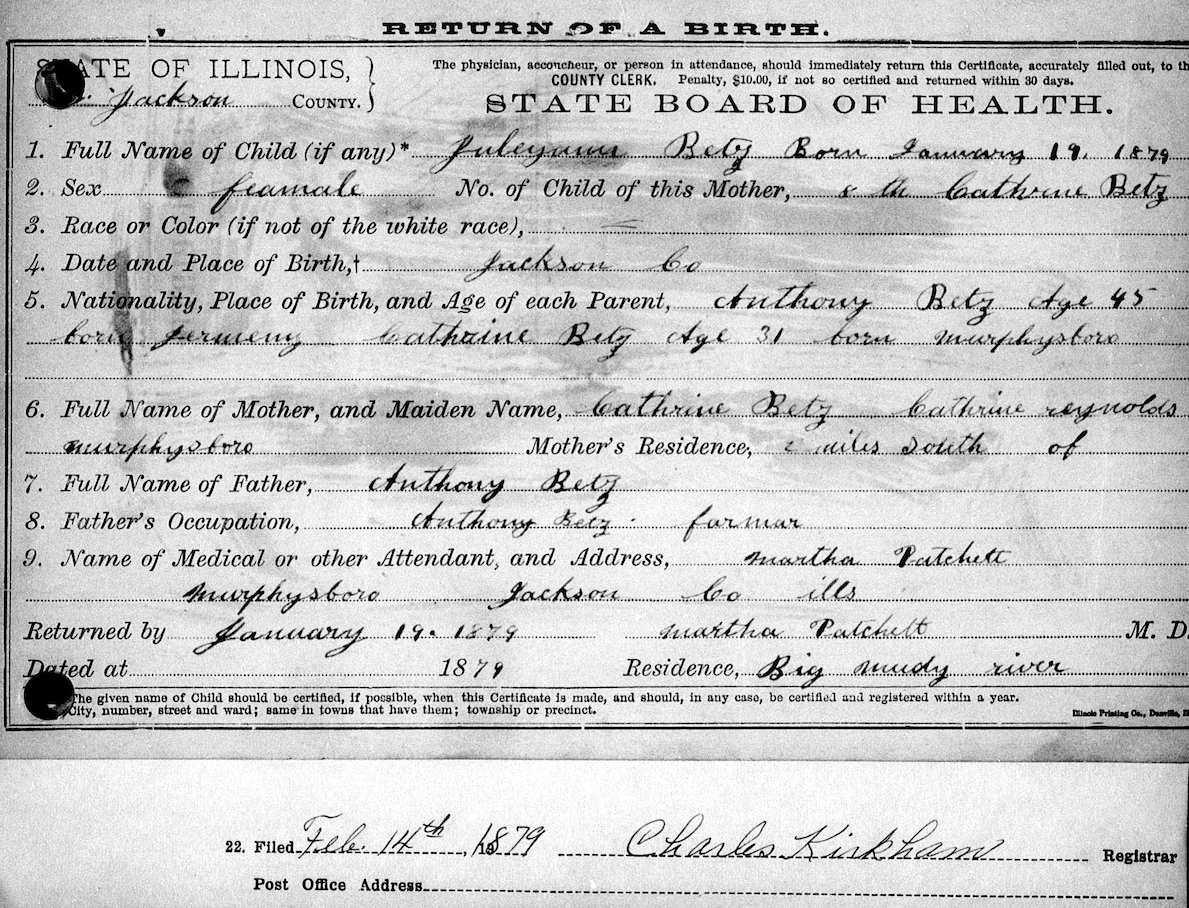 RETURN OF A BIRTH.
STATE OF ILLINOIS,
Jackson COUNTY.
The physician, accoucheur, or person in attendance, should immediately return this Certificate, accurately filled out, to th
COUNTY CLERK. Penalty, $10.00, if not so certified and returned within 30 days.
STATE BOARD OF HEALTH.
1. Full Name of Child (if any)* Juleyann Betz Born January 19. 1879
2. Sex feamale No. of Child of this Mother, 8 th Cathrine Betz
3. Race or Color (if not of the white race),
4. Date and Place of Birth,† Jackson Co
5. Nationality, Place of Birth, and Age of each Parent, Anthony Betz Age 45
born germeny Cathrine Betz Age 31 born murphysboro
6. Full Name of Mother, and Maiden Name, Cathrine Betz Cathrine reynolds
murphysboro Mother's Residence, 2 miles south of
7. Full Name of Father, Anthony Betz
8. Father's Occupation, Anthony Betz farmar
9. Name of Medical or other Attendant, and Address, martha Patchett
murphysboro Jackson Co ills
Returned by January 19. 1879 martha Patchett M. D.
Dated at 1879 Residence, Big mudy river
The given name of Child should be certified, if possible, when this Certificate is made, and should, in any case, be certified and registered within a year.
City, number, street and ward; same in towns that have them; township or precinct.
Illinois Printing Co., Danville, Il
22. Filed Feb. 14th, 1879 Charles Kirkham Registrar
Post Office Address